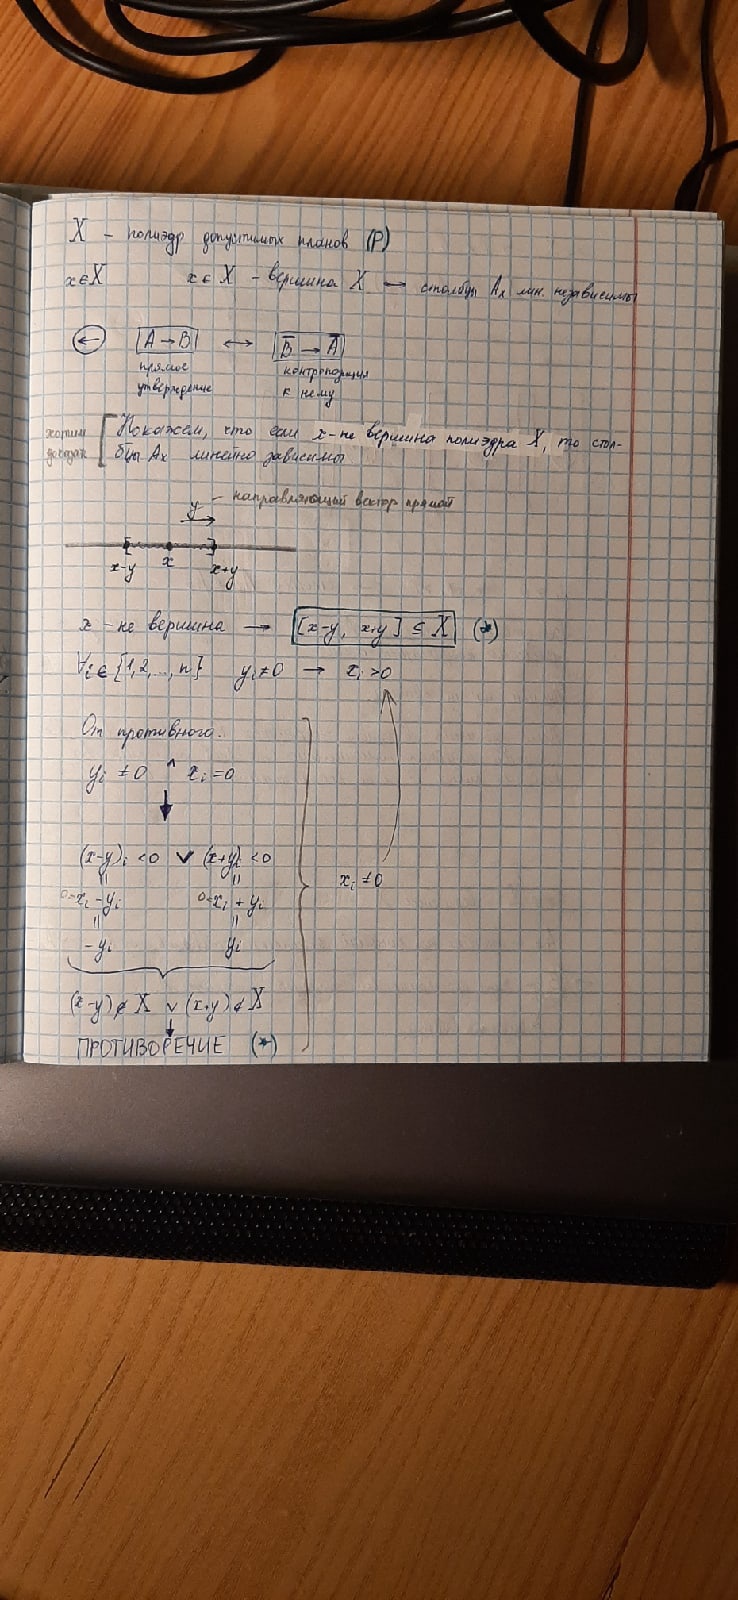 X - полиэдр допустимых планов (P)
x ∈ X x ∈ X - вершина X ⟷ столбцы Aₓ лин. независимы
← A → B ⟷ B̅ → A̅
прямое утверждение контрпозиция к нему
хотим доказать [ Покажем, что если x - не вершина полиэдра X, то стол-
бцы Aₓ линейно зависимы
y - направляющий вектор прямой
x-y x x+y
x - не вершина → [x-y, x+y] ⊆ X (*)
∀i ∈ {1,2,...,n} yᵢ ≠ 0 → xᵢ > 0
От противного.
yᵢ ≠ 0 ^ xᵢ = 0
(x-y)ᵢ < 0 ∨ (x+y)ᵢ < 0
xᵢ ≠ 0
0=xᵢ - yᵢ 0=xᵢ + yᵢ
-yᵢ yᵢ
(x-y) ∉ X ∨ (x+y) ∉ X
ПРОТИВОРЕЧИЕ (*)